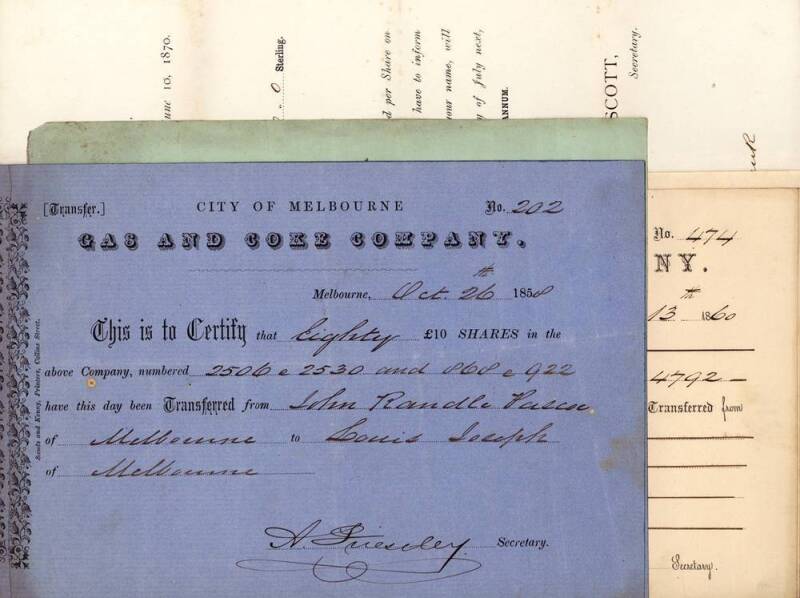 [Transfer.] CITY OF MELBOURNE No. 202
GAS AND COKE COMPANY.
Melbourne, Oct. 26th 1858
This is to Certify that Eighty £10 SHARES in the
above Company, numbered 2506 @ 2530 and 868 @ 922
have this day been Transferred from John Randle
of Melbourne to Louis Joseph
of Melbourne
Secretary.
Sands and Kenny, Printers, Collins Street.
No. 474
NY.
13th 1860
4792
Transferred from
Secretary.
10, 1870.
0 Sterling.
per Share on
have to inform
your name, will
of July next,
ANNUM.
SCOTT,
Secretary.